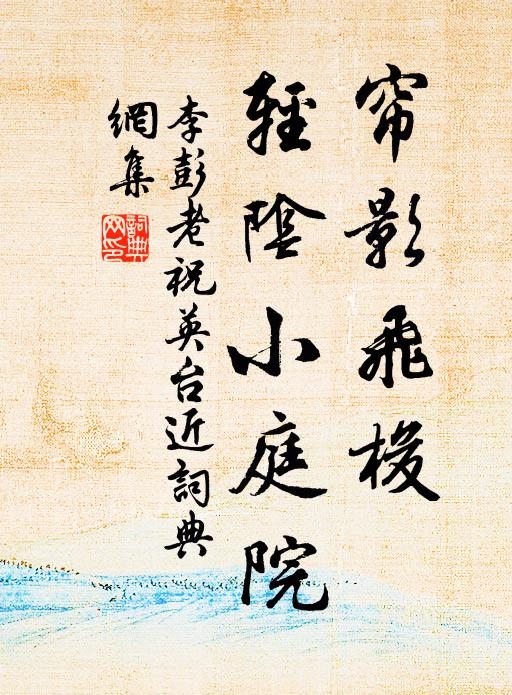 帘影飛梭
輕陰小庭院
李彭老祝英台近詞典
網集
詞典網印